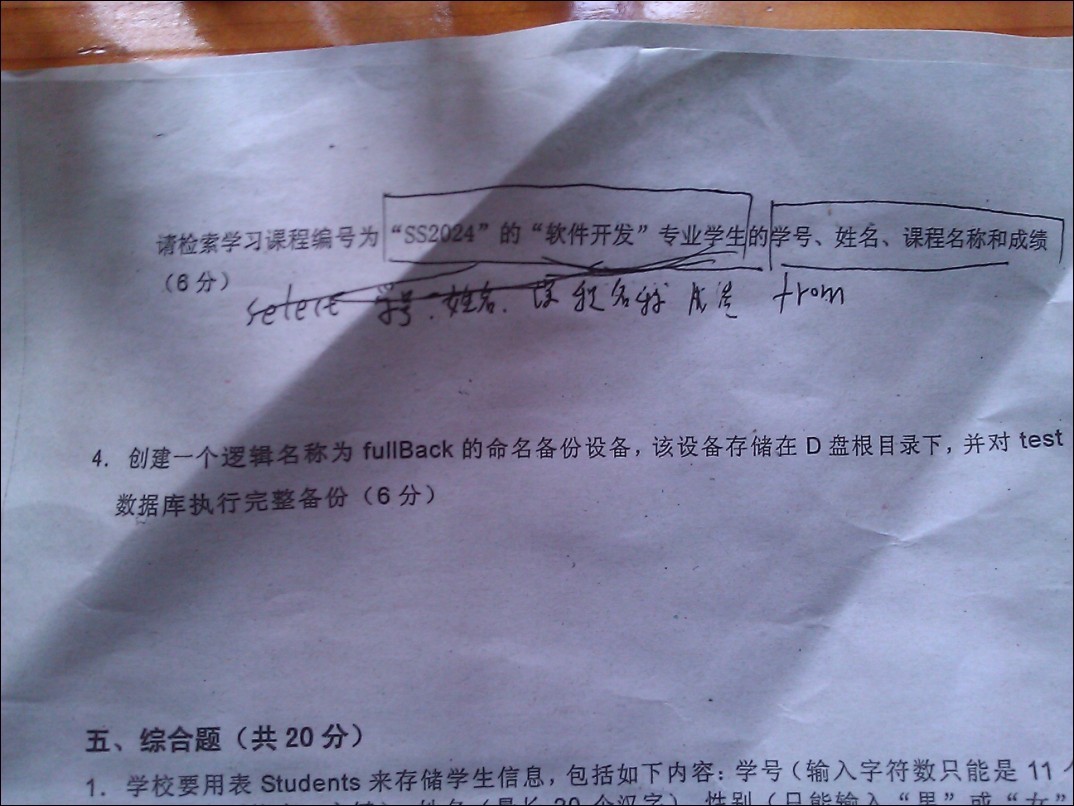 请检索学习课程编号为“SS2024”的“软件开发”专业学生的学号、姓名、课程名称和成绩
（6 分）
select 学号.姓名.课程名称 from
4. 创建一个逻辑名称为 fullBack 的命名备份设备，该设备存储在 D 盘根目录下，并对 test
数据库执行完整备份（6 分）
五、综合题（共 20 分）
1. 学校要用表 Students 来存储学生信息，包括如下内容：学号（输入字符数只能是 11
姓名（最长 20 个汉字）、性别（只能输入“男”或“女”